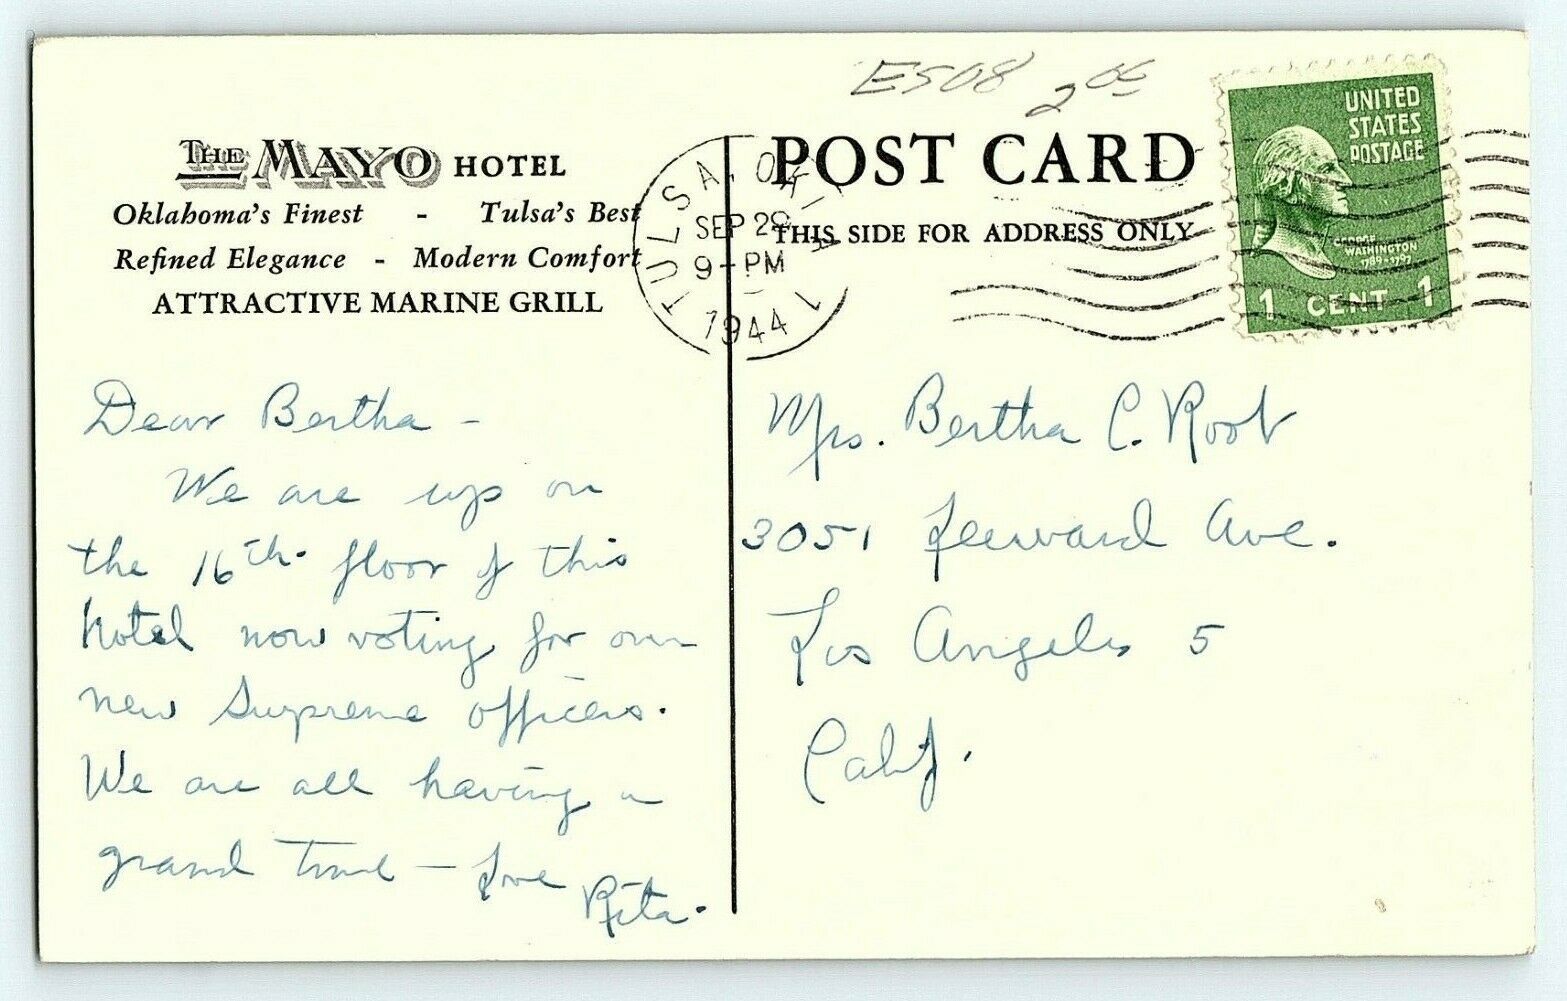 E508 2.00
THE MAYO HOTEL
Oklahoma's Finest - Tulsa's Best
Refined Elegance - Modern Comfort
ATTRACTIVE MARINE GRILL
TULSA, OKLA.
SEP 29
9-PM
1944
1
POST CARD
THIS SIDE FOR ADDRESS ONLY
UNITED
STATES
POSTAGE
WASHINGTON
1789-1797
1 CENT 1
Dear Bertha -
We are up on
the 16th. floor of this
hotel now voting for our
new Supreme Officers.
We are all having a
grand time - Love
Rita.
Mrs. Bertha C. Root
3051 Leeward Ave.
Los Angeles 5
Calif.